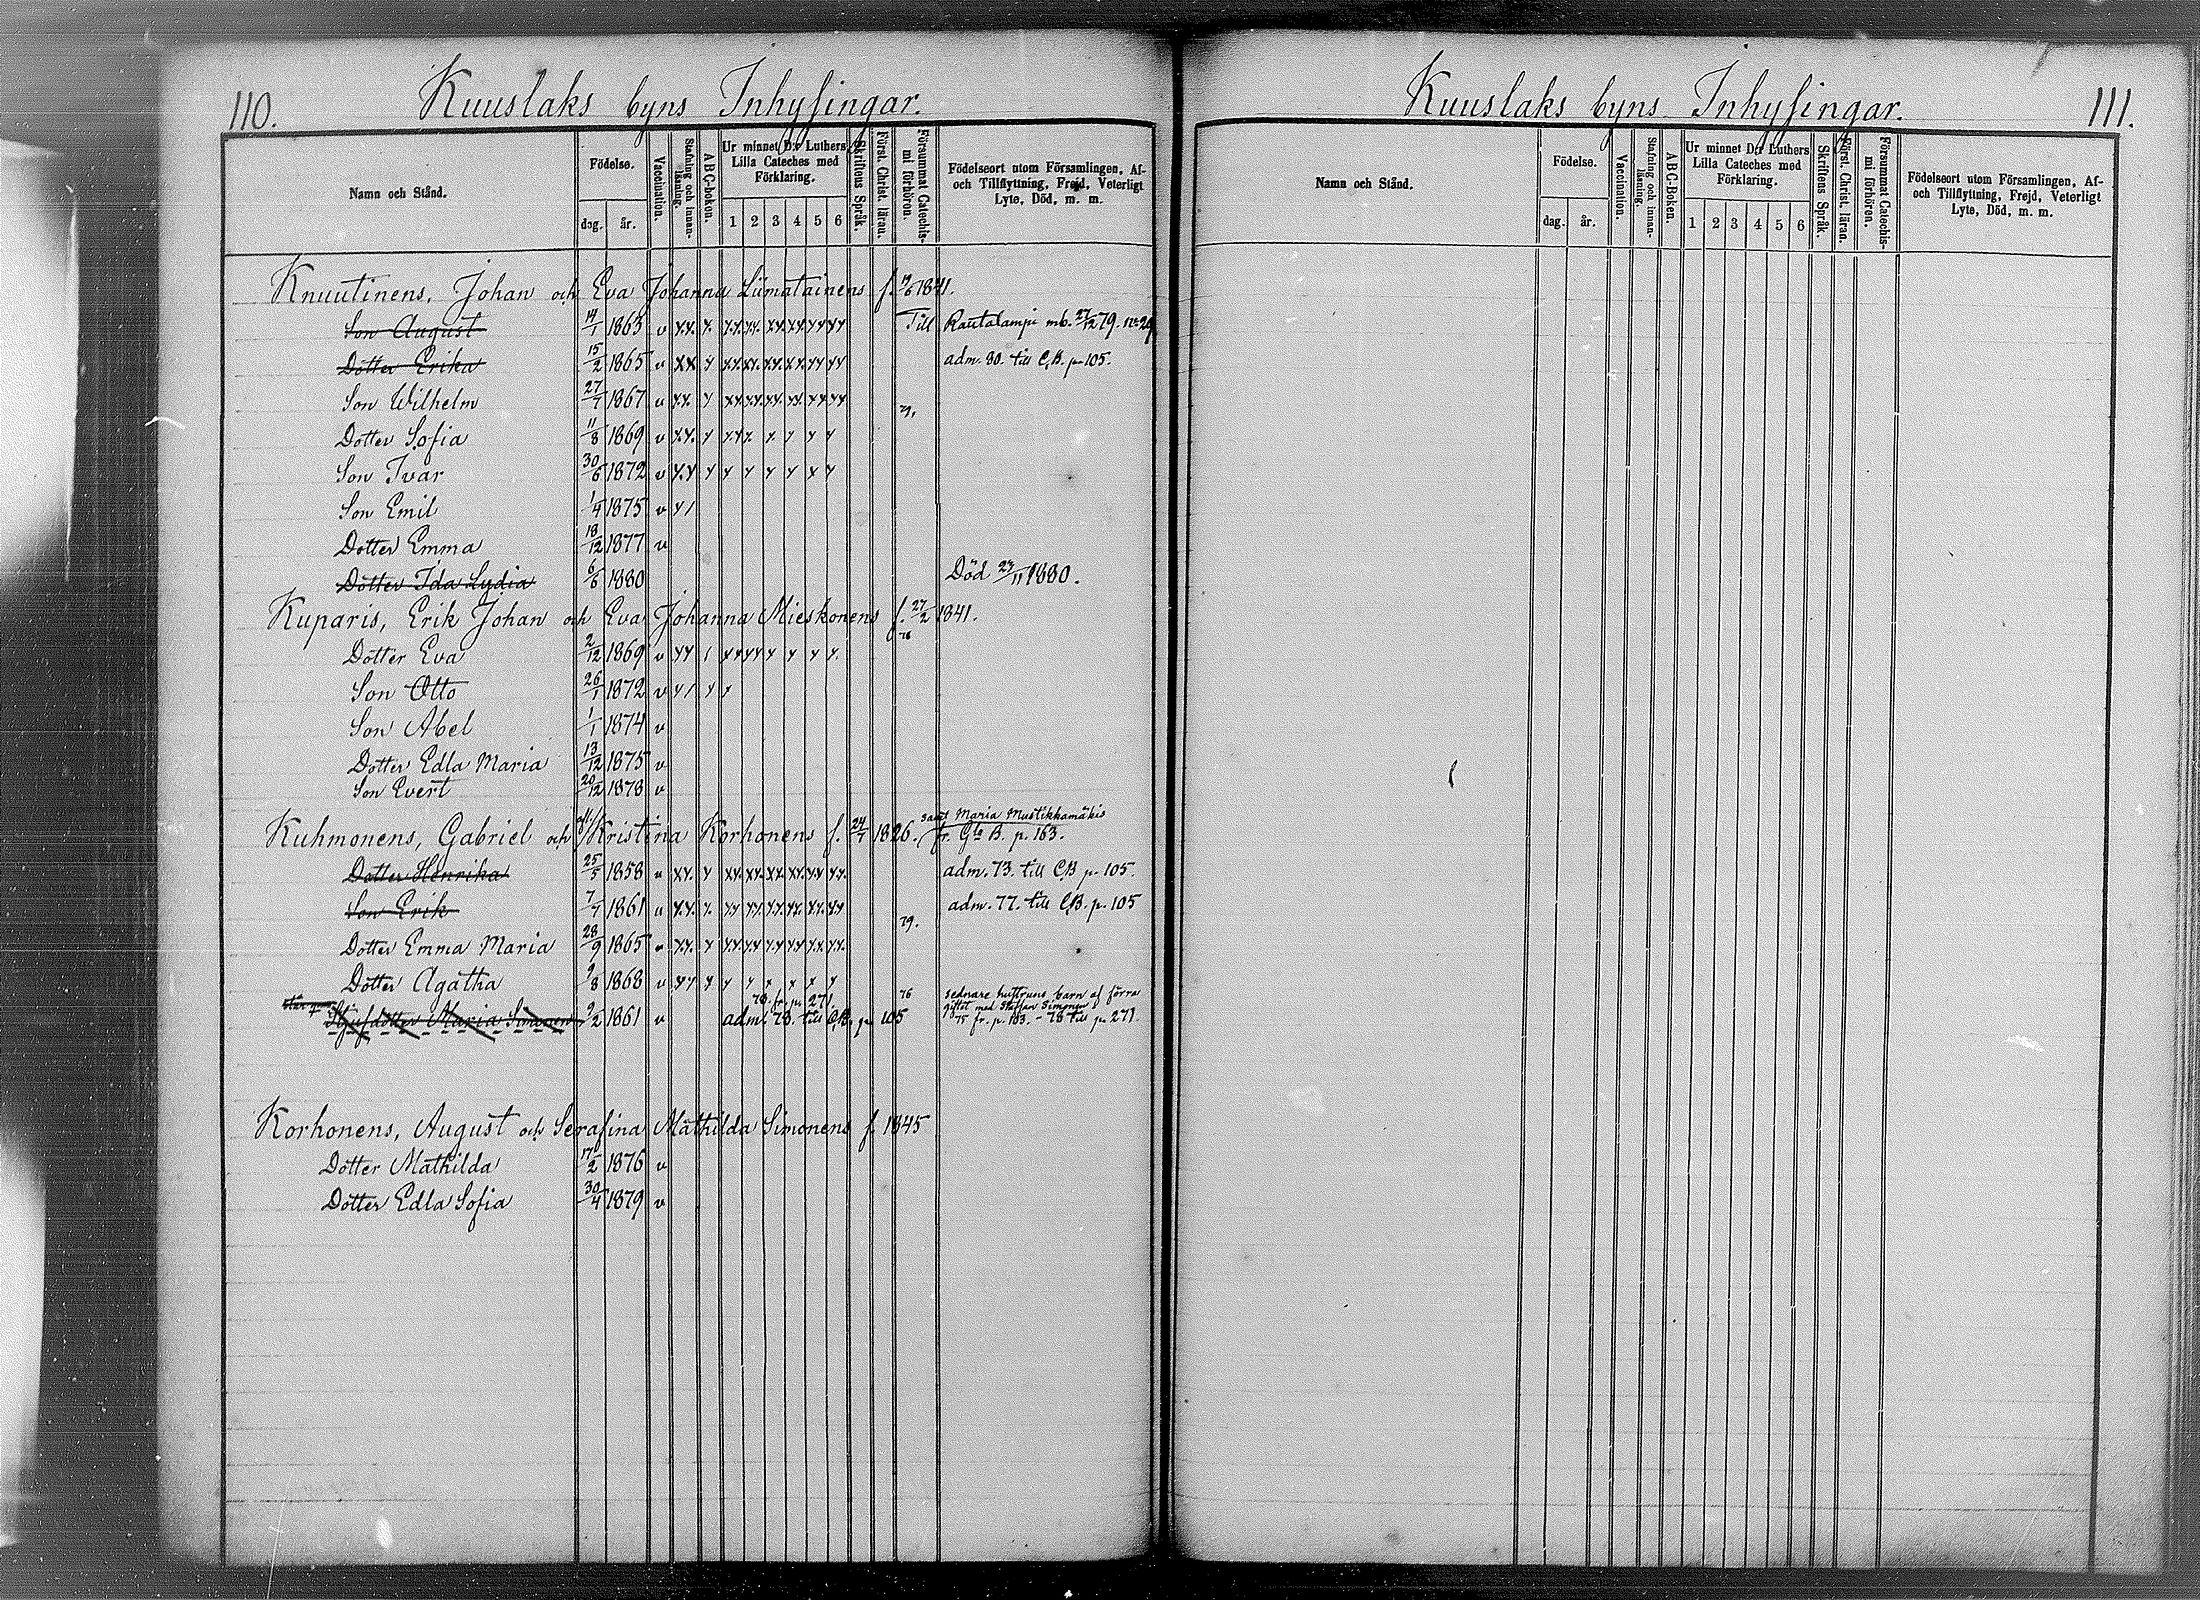 110.
Kuuslaks byns Inhysingar.
Namn och Stånd.
Födelse.
dag. år.
Vaccination.
Stafning och innanläsning.
ABC-boken.
Ur minnet D:r Luthers Lilla Cateches med Förklaring.
1 2 3 4 5 6
Skriftens Språk.
Först. Christ. läran.
Försummat Catechismi förhören.
Födelseort utom Församlingen, Af- och Tillflyttning, Frejd, Veterligt Lyte, Död, m. m.
Knuutinens, Johan och Eva Johanna Liimatainens f. 19/6 1841.
Son August 14/1 1863 v Till Rautalampi mb. 27/12 79. No 29
Dotter Erika 15/2 1865 v adm. 80. till C.B. p. 105.
Son Wilhelm 27/7 1867 v 79.
Dotter Sofia 11/8 1869 v
Son Ivar 30/6 1872 v
Son Emil 1/4 1875 v
Dotter Emma 18/12 1877 v
Dotter Ida Lydia 6/6 1880 Död 23/11 1880.
Kuparis, Erik Johan och Eva Johanna Mieskonens f. 27/2 1841.
Dotter Eva 2/12 1869 v 78
Son Otto 26/1 1872 v
Son Abel 1/1 1874 v
Dotter Edla Maria 13/12 1875 v
Son Evert 20/12 1878 v
Kuhmonens, Gabriel och Kristina Korhonens f. 24/7 1826. samt Maria Mustikkamäkis
fr. Gla B. p. 163.
Dotter Henrika 25/5 1858 v adm. 73. till C.B p. 105.
Son Erik 7/7 1861 v adm. 77. till C.B. p. 105
Dotter Emma Maria 28/9 1865 v 79.
Dotter Agatha 9/8 1868 v
Styfdotter Maria Simonen 9/2 1861 v 78 fr. p. 271 adm. 78. till C.B. p. 105 76
sednare hustruns barn af förra
giftet med Staffan Simonen
75 fr. p. 163. - 78 till p. 271.
Korhonens, August och Serafina Mathilda Simonens f. 1845
Dotter Mathilda 17/2 1876 v
Dotter Edla Sofia 30/4 1879 v
Kuuslaks byns Inhysingar.
111.
Namn och Stånd.
Födelse.
dag. år.
Vaccination.
Stafning och innanläsning.
ABC-Boken.
Ur minnet D:r Luthers Lilla Cateches med Förklaring.
1 2 3 4 5 6
Skriftens Språk.
Först. Christ. läran.
Försummat Catechismi förhören.
Födelseort utom Församlingen, Af- och Tillflyttning, Frejd, Veterligt Lyte, Död, m. m.